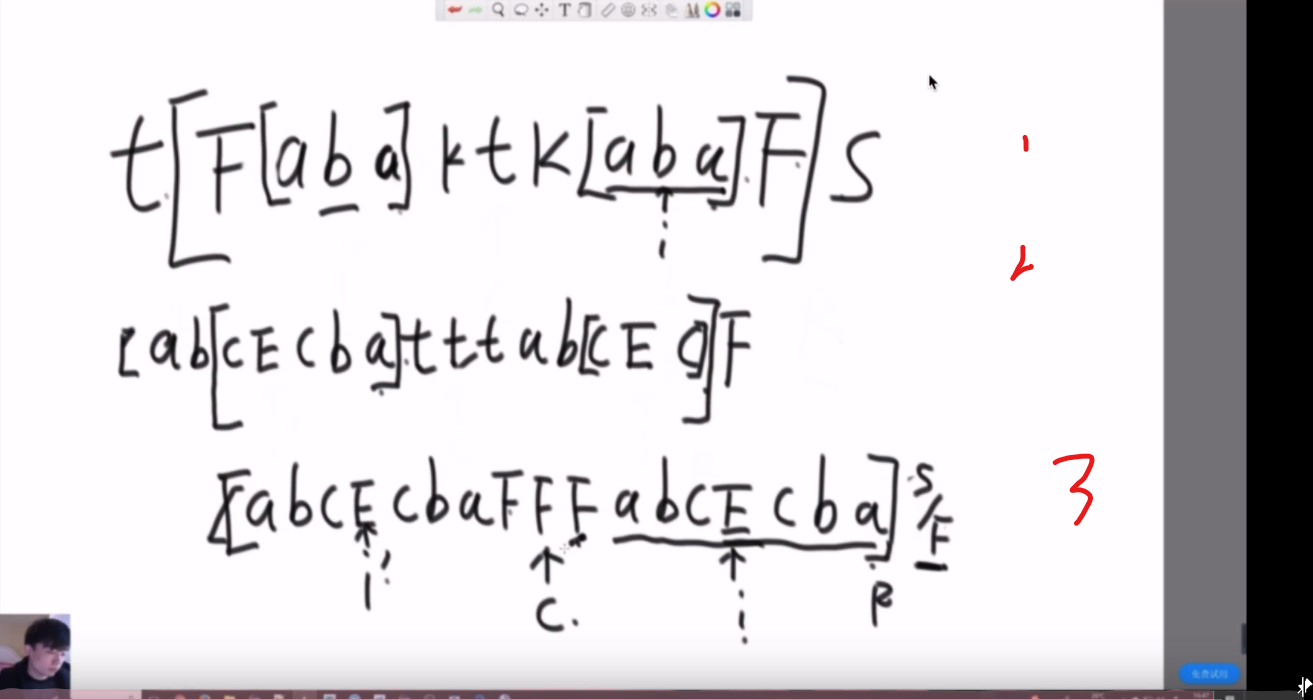 t[F[aba]ktk[aba]F]S
1
i
2
[ab[cEcba]tttab[cEc]]F
[abcEcbaFFFabcEcba] S/F
3
i'
C.
i
R
免费试用